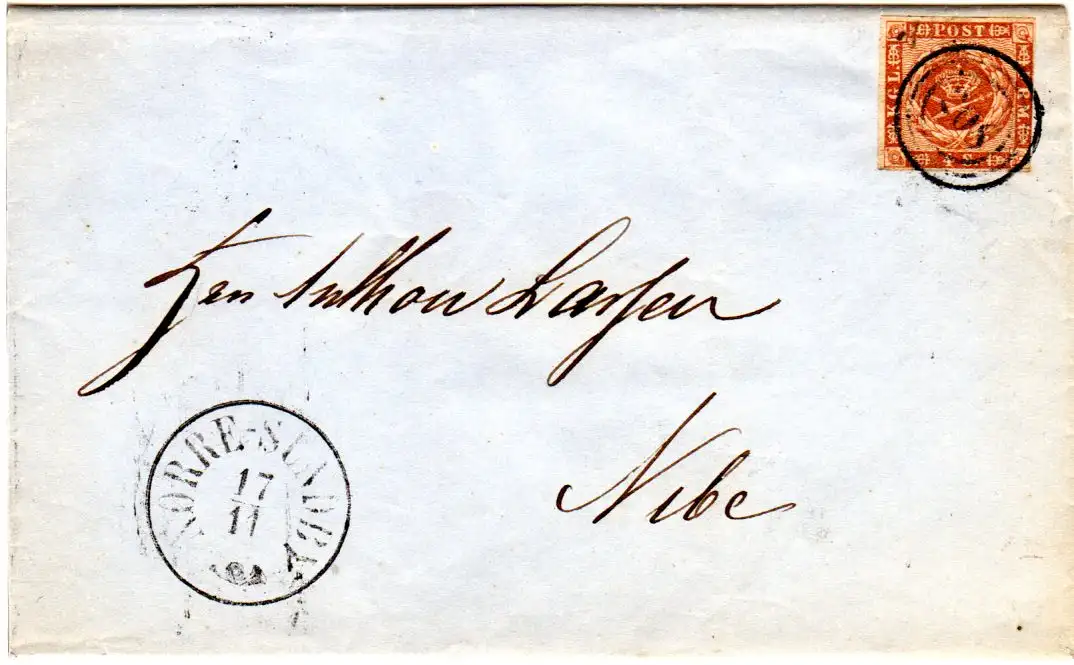 KGL POST FRM
4 S
Hrn Anthon Larsen
Nibe
NØRRE-SUNDBY
17
11